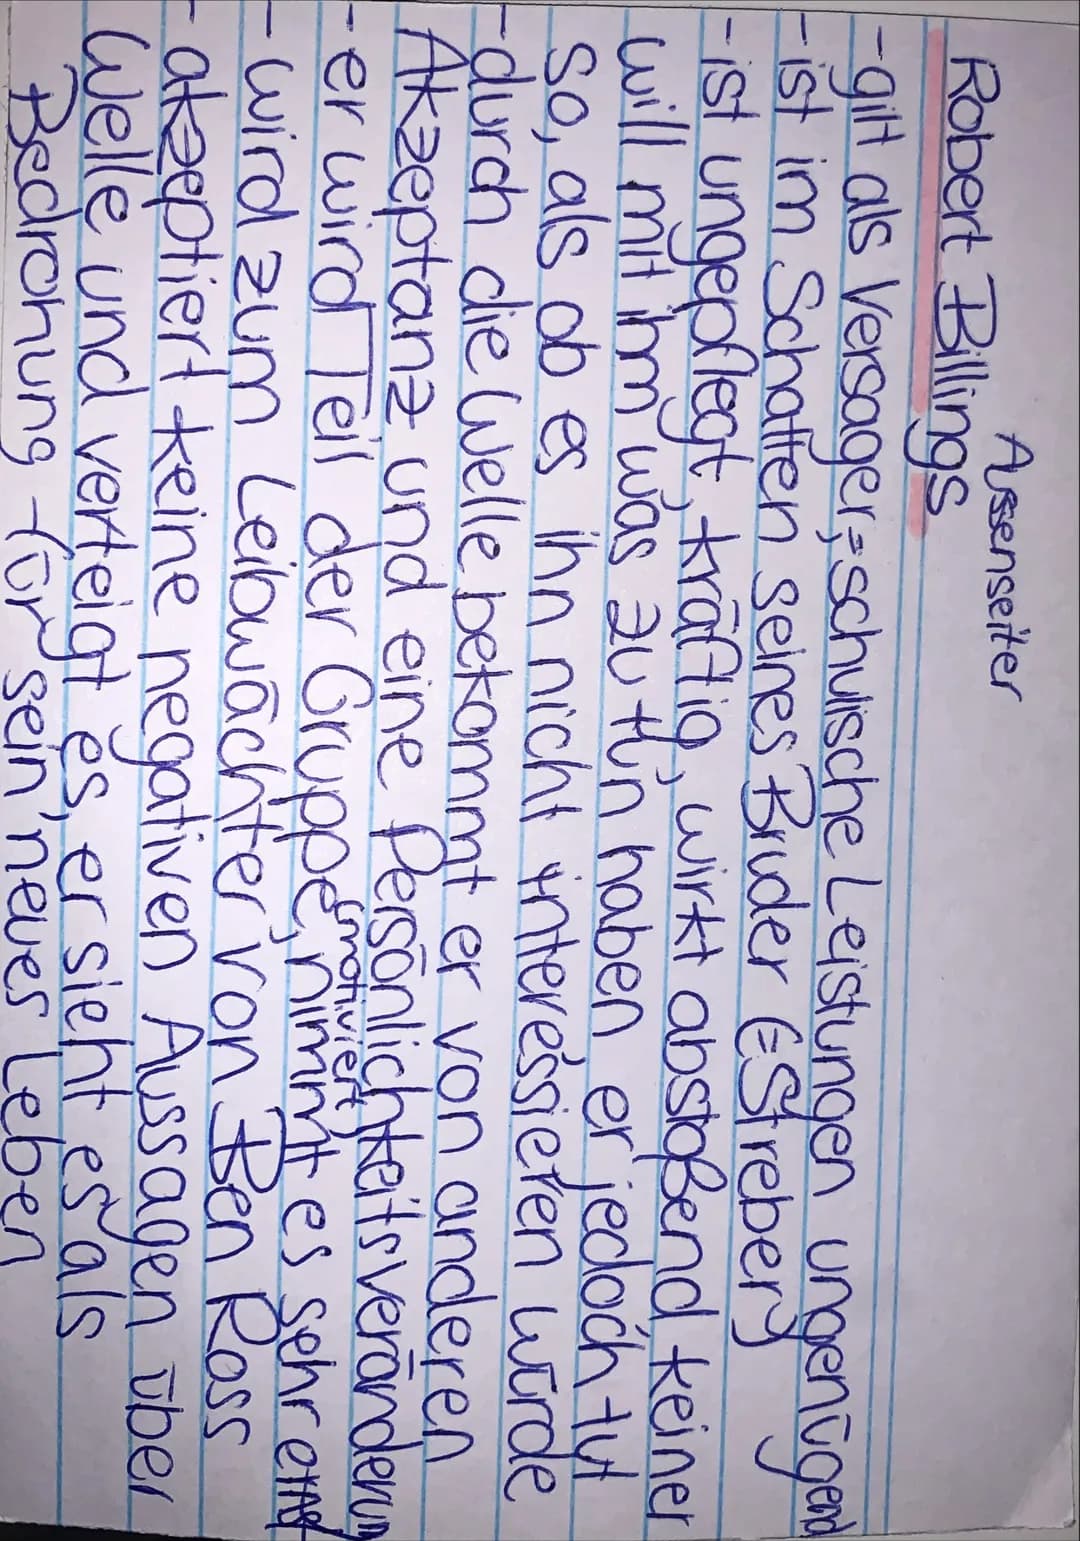 Aussenseiter
Robert Billings
-gilt als Versager,=schulische Leistungen ungenügend
-ist im Schatten seines Bruder (Streber)
-ist ungepflegt, kräftig, wirkt abstoßend keiner
will mit ihm was zu tun haben er jedoch tut
so, als ob es ihn nicht interessieren würde
-durch die Welle bekommt er von anderen
Akzeptanz und eine Persönlichkeitsveränderun
(motiviert)
-er wird Teil der Gruppe, nimmt es sehr ernst
-wird zum Leibwächter von Ben Ross
-akzeptiert keine negativen Aussagen über
Welle und verteigt es, er sieht es als
Bedrohung für sein neues Leben